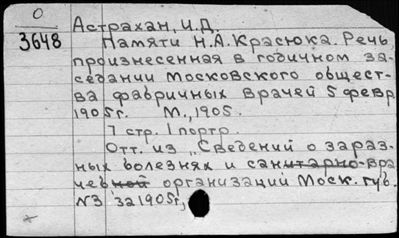 О
3648
Астрахан, И.Д.
Памяти Н.А.Красюка. Речь,
произнесенная в годичном за-
седании Московского общест-
ва фабричных врачей 5 февр.
1905г. М., 1905.
7 стр. 1 портр.
Отт. из „Сведений о зараз-
ных болезнях и санитарно-вра
чебной организаций Моск. губ.
№3 за 1905г.,